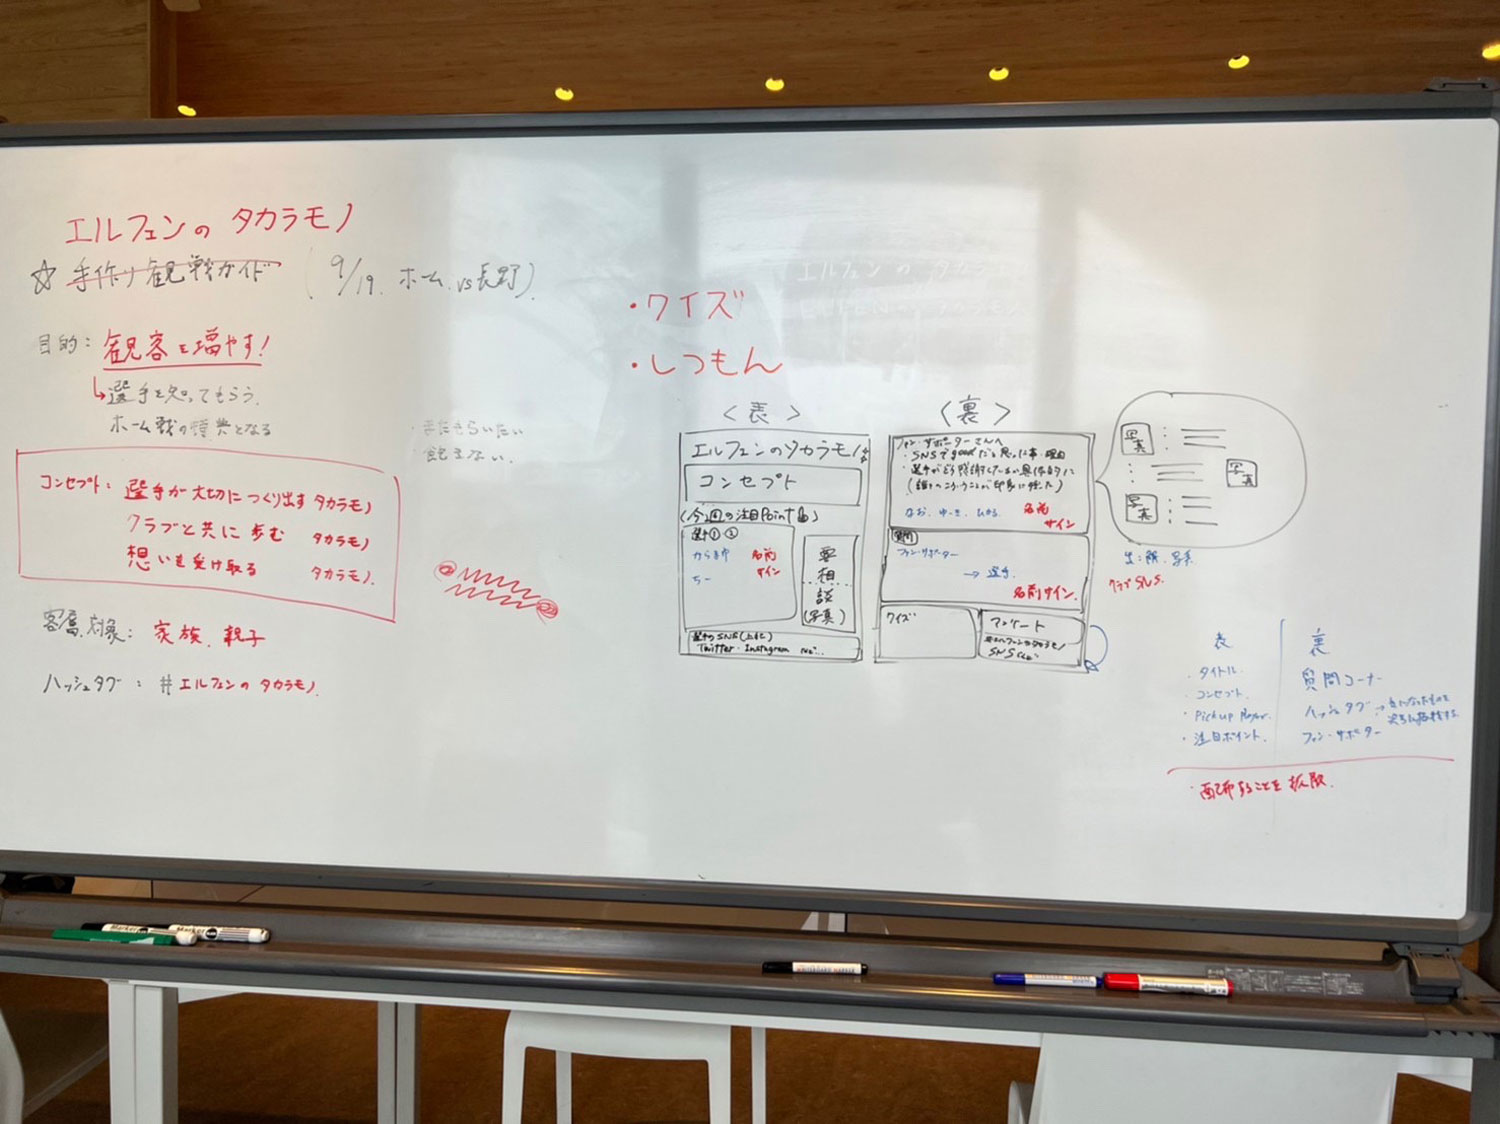 エルフェンの タカラモノ
☆ 手作り観戦ガイド (9/19. ホーム vs長野).
目的: 観客を増やす!
↳選手を知ってもらう.
ホーム戦の特典となる
・またもらいたい
・飽きない.
コンセプト: 選手が大切につくり出す タカラモノ
クラブと共に歩む タカラモノ
想いを受け取る タカラモノ.
客層.対象: 家族. 親子
ハッシュタグ: #エルフェンの タカラモノ.
・クイズ
・しつもん
エルフェンの タカラモノ
<表>
エルフェンのタカラモノ☆
コンセプト
(今週の注目Point)
選手①②
名前
サイン
ちー
要
相
談
(写真)
選手のSNS
Twitter・Instagram
<裏>
ファン・サポーターさんへ
名前
サイン
質問
ファン・サポーター
→ 選手.
名前サイン.
クイズ
アンケート
#エルフェンのタカラモノ
SNS
写真
写真
写真
クラブSNS.
表
・タイトル.
・コンセプト.
・Pick up player.
・注目ポイント.
裏
質問コーナー
ハッシュタグ →
ファン・サポーター
・配布することを拡散.